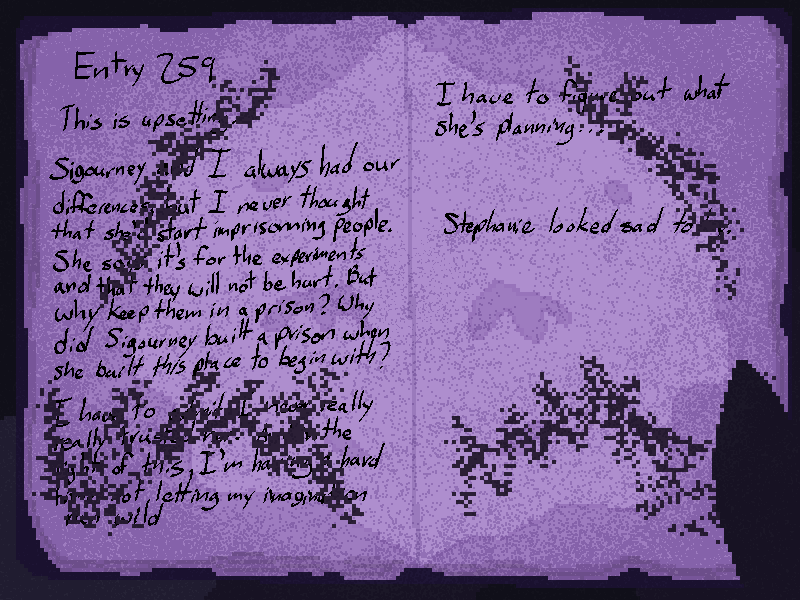 Entry 259
This is upsetting
Sigourney and I always had our
differences, but I never thought
that she'd start imprisonning people.
She says it's for the experiments
and that they will not be hurt. But
why keep them in a prison? Why
did Sigourney built a prison when
she built this place to begin with?
I have to admit I never really
really trusted her. In the
light of this, I'm having a hard
time not letting my imagination
run wild
I have to figure out what
she's planning...
Stephanie looked sad to